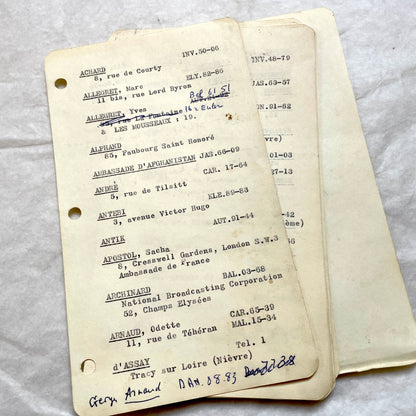 ACHARD INV.50-06
8, rue de Courty
ALLEGRET, Marc ELY.82-86
11 bis, rue Lord Byron
ALLEGRET, Yves
& LES MOUSSEAUX : 19.
ALPHAND
85, Faubourg Saint Honoré
AMBASSADE D'AFGHANISTAN JAS.66-09
ANDRÉ CAR. 17-64
5, rue de Tilsitt
ANTERI KLE.89-83
3, avenue Victor Hugo
ANTIK AUT.91-44
APOSTOL, Sacha
8, Cresswell Gardens, London S.W.3
Ambassade de France
ARCHINARD BAL.03-68
National Broadcasting Corporation
52, Champs Elysées
ARNAUD, Odette CAR.65-39
11, rue de Téhéran MAL.15-34
d'ASSAY Tel. 1
Tracy sur Loire (Nièvre)
George Arnaud DAN.08.83
INV.48-79
JAS.63-57
ON.91-62
vre)
01-03
27-13
-42
ème)